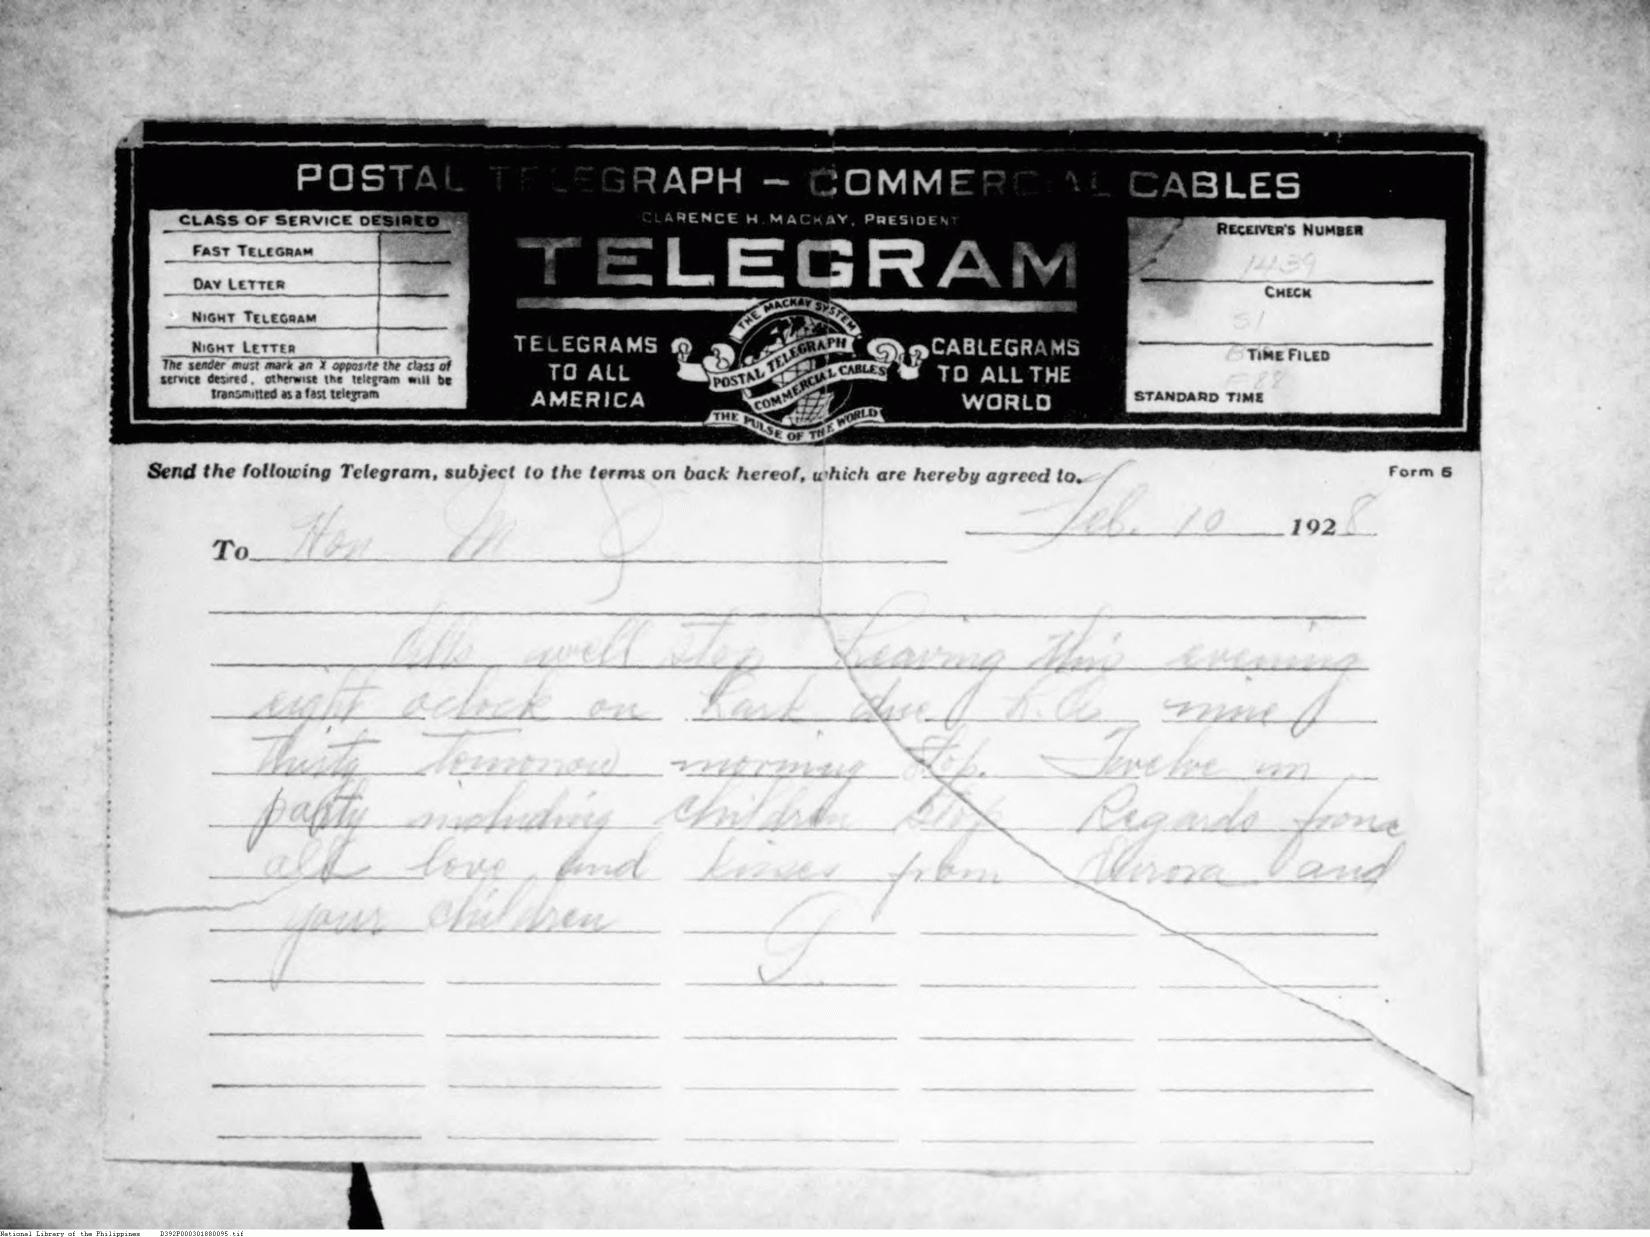 POSTAL TELEGRAPH – COMMERCIAL CABLES
CLARENCE H. MACKAY, PRESIDENT
TELEGRAM
CLASS OF SERVICE DESIRED
FAST TELEGRAM
DAY LETTER
NIGHT TELEGRAM
NIGHT LETTER
The sender must mark an X opposite the class of
service desired, otherwise the telegram will be
transmitted as a fast telegram
TELEGRAMS
TO ALL
AMERICA
THE MACKAY SYSTEM
POSTAL TELEGRAPH
COMMERCIAL CABLES
THE PULSE OF THE WORLD
CABLEGRAMS
TO ALL THE
WORLD
RECEIVER'S NUMBER
1439
CHECK
51
TIME FILED
STANDARD TIME
Send the following Telegram, subject to the terms on back hereof, which are hereby agreed to.
Form 6
Feb. 10 1928
To Hon M
Alls well stop Leaving this evening
eight oclock on Lark due L.A. nine
thirty tomorrow morning stop. Twelve in
party including children stop Regards from
all love and kisses from Aurora and
your children
National Library of the Philippines D392P000301880095.tif